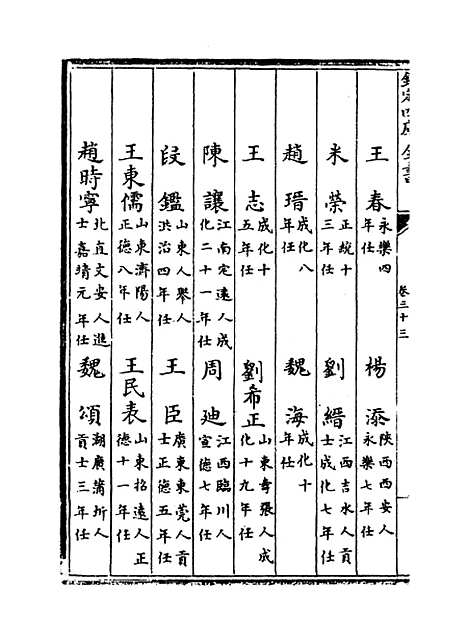 欽定四庫全書
卷三十三
王春永樂四年任 楊添陜西西安人永樂七年任
米榮正統十三年任 劉縉江西吉水人貢士成化七年任
趙瑨成化八年任 魏海成化十年任
王志成化十五年任 劉希正山東壽張人成化十九年任
陳讓江南定遠人成化二十一年任 周廸江西臨川人宣德七年任
段鑑山東人舉人洪治四年任 王臣廣東東莞人貢士正德五年任
王東儒山東濟陽人正德八年任 王民表山東招遠人正德十一年任
趙時寧北直文安人進士嘉靖元年任 魏頌湖廣蒲圻人貢士三年任